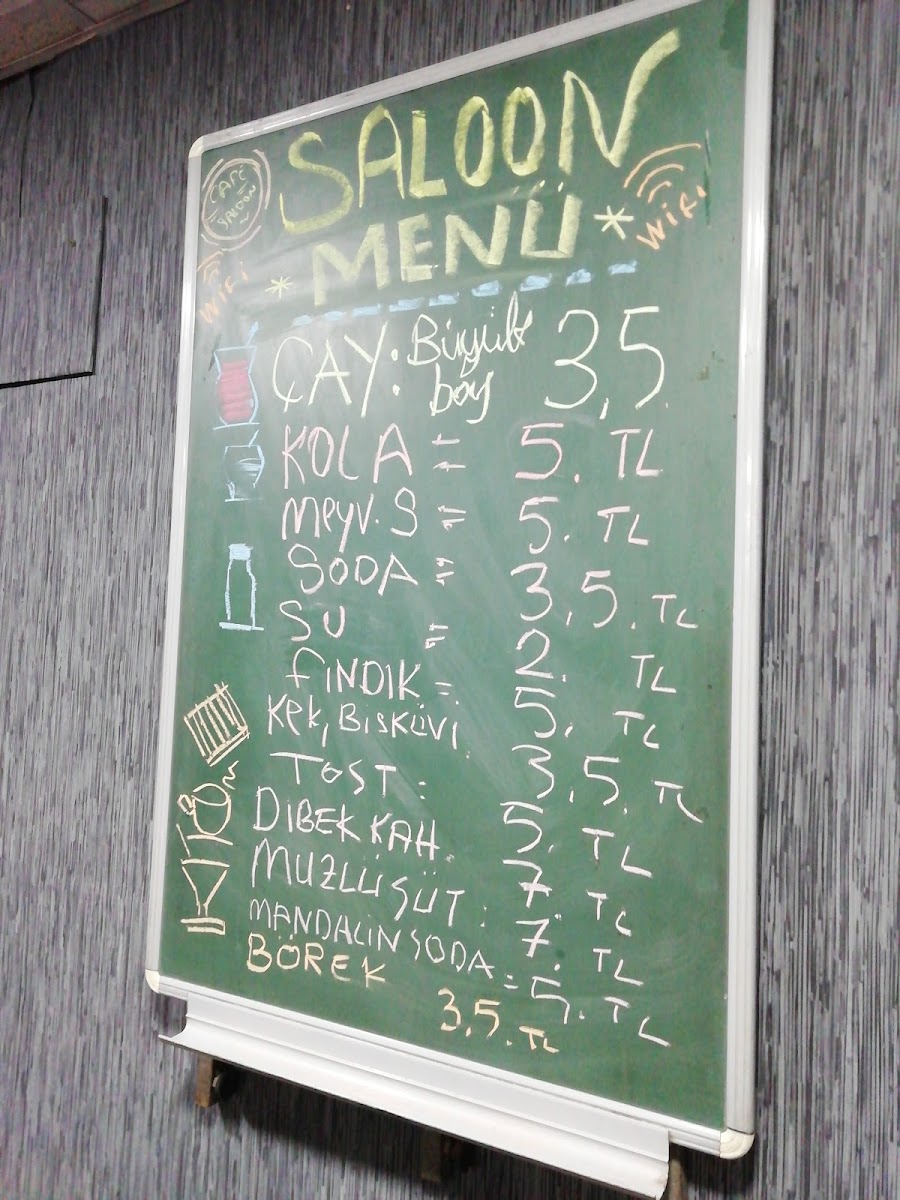 SALOON
MENÜ
CAFE SALOON
WİFİ
WİFİ
ÇAY: Büyük boy 3,5
KOLA = 5. TL
Meyv. S = 5. TL
SODA = 3,5. TL
SU = 2. TL
FINDIK = 5. TL
Kek, BİSKÜVİ 3,5. TL
TOST: 5. TL
DİBEK KAH. 7 TL
MUZLU SÜT: 7. TL
MANDALİN SODA = 5. TL
BÖREK 3,5. TL